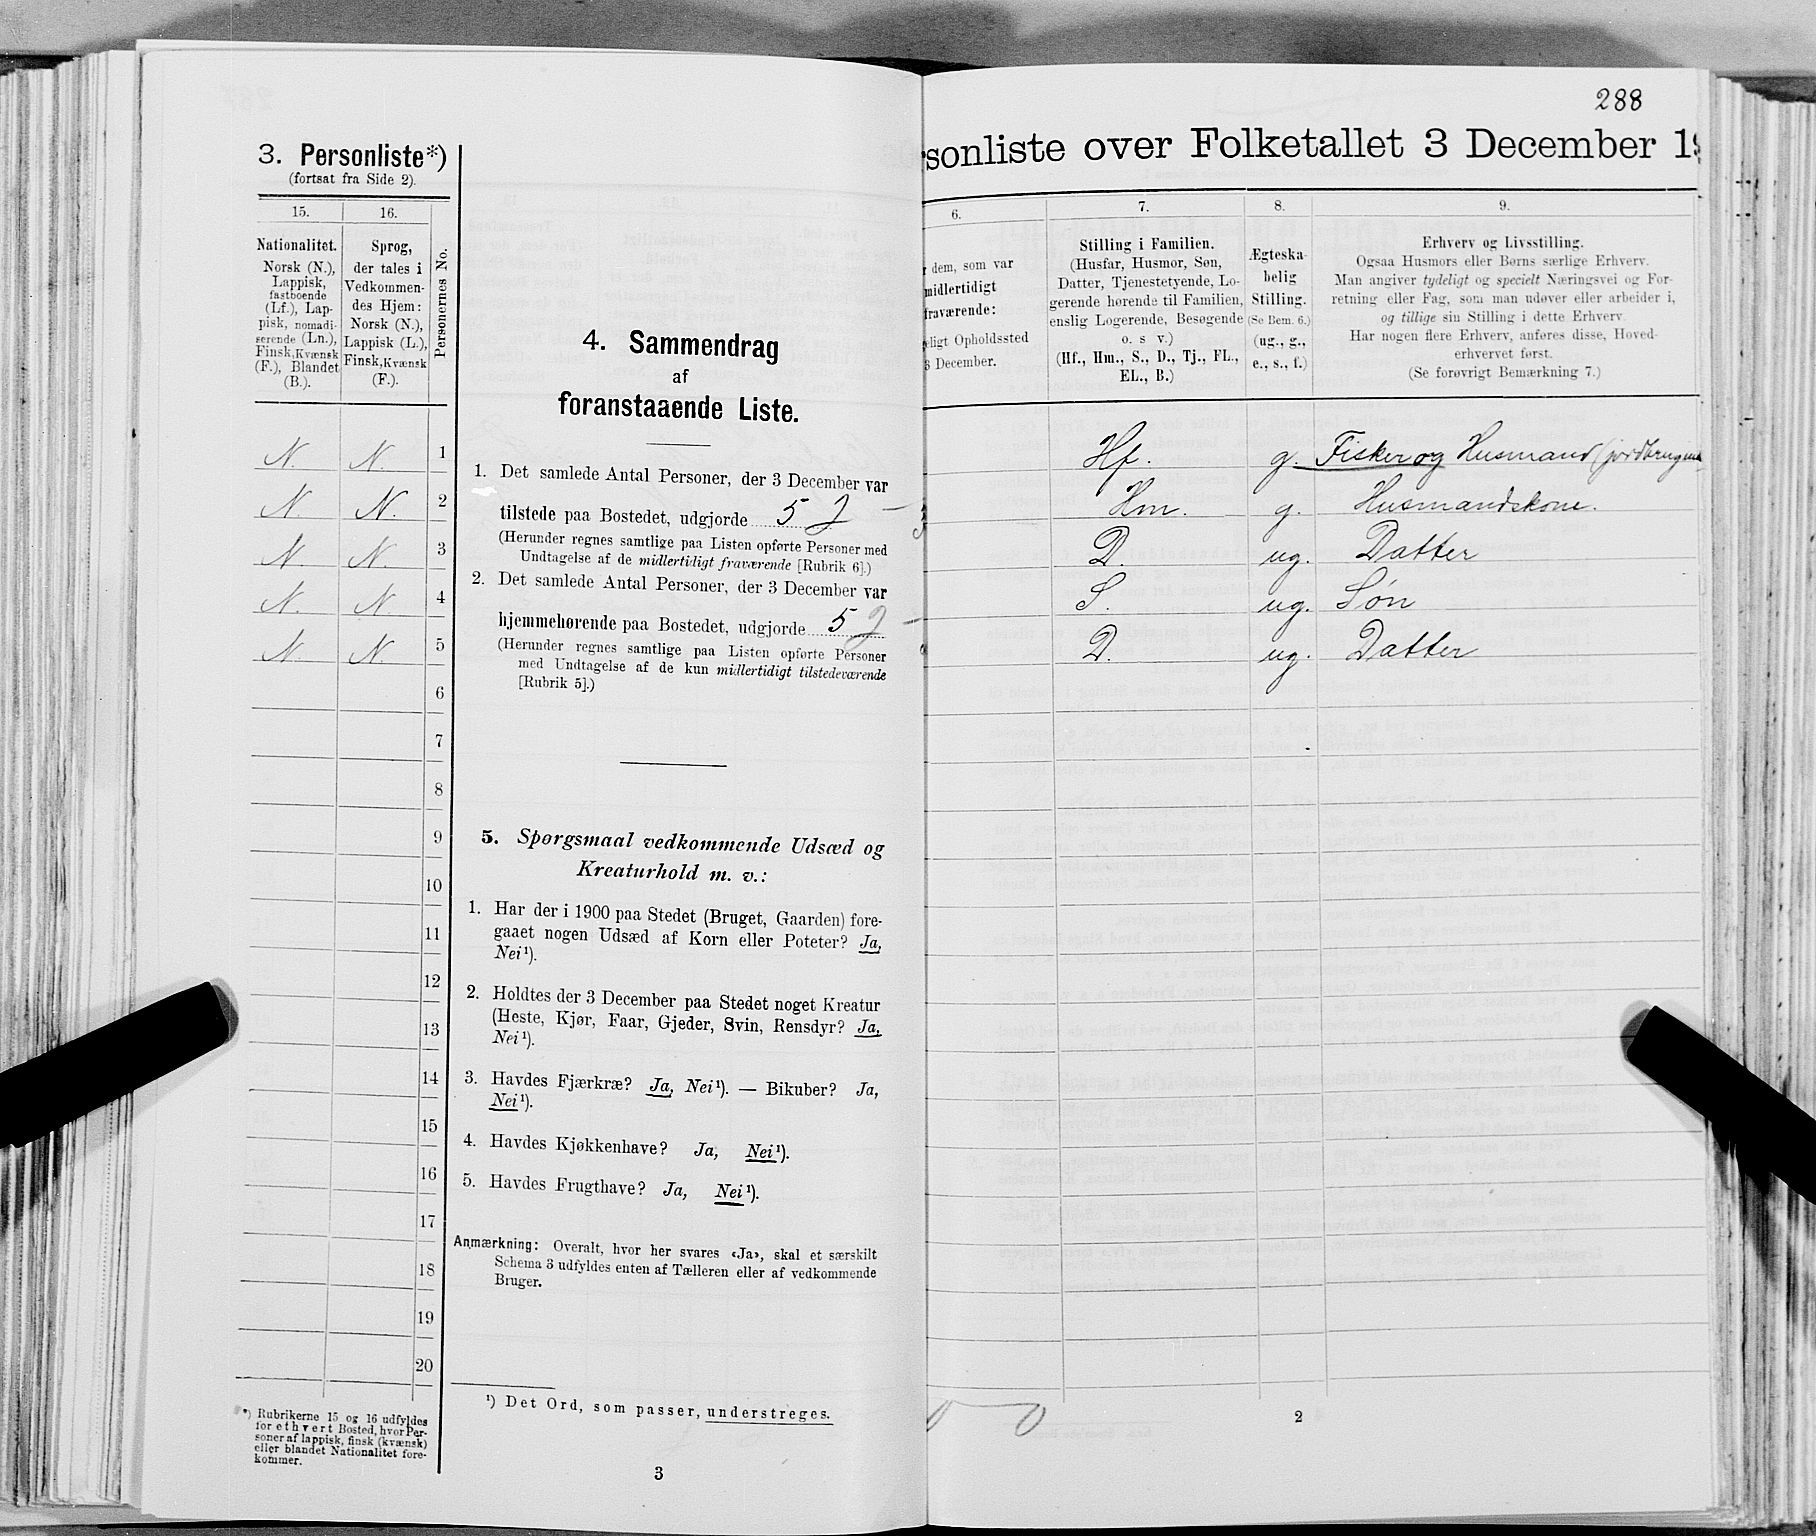 3. Personliste*)
(fortsat fra Side 2).
15.
16.
Personernes No.
Nationalitet.
Norsk (N.),
Lappisk,
fastboende
(Lf.), Lap-
pisk, nomadi-
serende (Ln.),
Finsk, Kvænsk
(F.), Blandet
(B.).
Sprog,
der tales i
Vedkommen-
des Hjem:
Norsk (N.),
Lappisk (L.),
Finsk, Kvænsk
(F.).
N. N. 1
N N. 2
N. N. 3
N. N 4
N. N. 5
6
7
8
9
10
11
12
13
14
15
16
17
18
19
20
*) Rubrikerne 15 og 16 udfyldes
for ethvert Bosted, hvor Per-
soner af lappisk, finsk (kvænsk)
eller blandet Nationalitet fore-
kommer.
4. Sammendrag
af
foranstaaende Liste.
1. Det samlede Antal Personer, der 3 December var
tilstede paa Bostedet, udgjorde 5
(Herunder regnes samtlige paa Listen opførte Personer med
Undtagelse af de midlertidigt fraværende [Rubrik 6].)
2. Det samlede Antal Personer, der 3 December var
hjemmehørende paa Bostedet, udgjorde 5
(Herunder regnes samtlige paa Listen opførte Personer
med Undtagelse af de kun midlertidigt tilstedeværende
[Rubrik 5].)
5. Spørgsmaal vedkommende Udsæd og
Kreaturhold m. v.:
1. Har der i 1900 paa Stedet (Bruget, Gaarden) fore-
gaaet nogen Udsæd af Korn eller Poteter? Ja,
Nei¹).
2. Holdtes der 3 December paa Stedet noget Kreatur
(Heste, Kjør, Faar, Gjeder, Svin, Rensdyr? Ja,
Nei¹).
3. Havdes Fjærkræ? Ja, Nei¹). — Bikuber? Ja,
Nei¹).
4. Havdes Kjøkkenhave? Ja, Nei¹).
5. Havdes Frugthave? Ja, Nei¹).
Anmærkning: Overalt, hvor her svares «Ja», skal et særskilt
Schema 3 udfyldes enten af Tælleren eller af vedkommende
Bruger.
¹) Det Ord, som passer, understreges.
3
288
sonliste over Folketallet 3 December 19
6.
7.
8.
9.
dem, som var
midlertidigt
fraværende:
eligt Opholdssted
3 December.
Stilling i Familien.
(Husfar, Husmor, Søn,
Datter, Tjenestetyende, Lo-
gerende hørende til Familien,
enslig Logerende, Besøgende
o. s v.)
(Hf., Hm., S., D., Tj., FL.,
EL., B.)
Ægteska-
belig
Stilling.
(Se Bem. 6.)
(ug., g.,
e., s., f.)
Erhverv og Livsstilling.
Ogsaa Husmors eller Børns særlige Erhverv.
Man angiver tydeligt og specielt Næringsvei og For-
retning eller Fag, som man udøver eller arbeider i,
og tillige sin Stilling i dette Erhverv.
Har nogen flere Erhverv, anføres disse, Hoved-
erhvervet først.
(Se forøvrigt Bemærkning 7.)
Hf. g. Fisker og Husmand (jordbrugende
Hm. g. Husmandskone.
D. ug. Datter
S. ug. Søn
D. ug. Datter
2